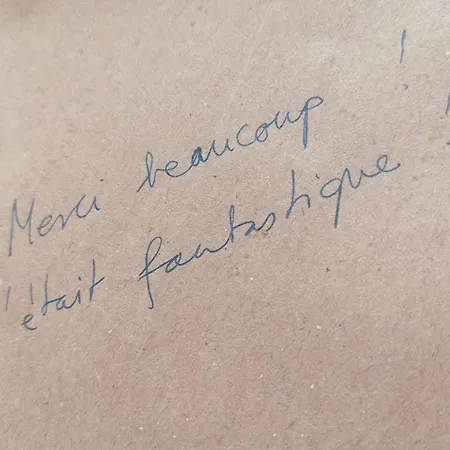 Merci beaucoup !
'était fantastique !